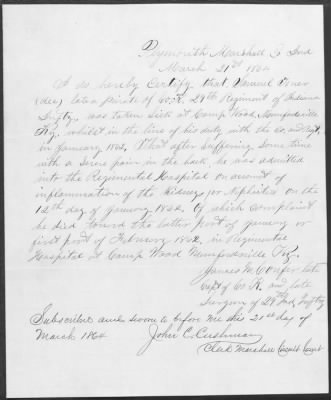 Plymouth Marshall Co Ind
March 21st 1864
I do hereby Certify that Samuel
(dec) late a private of Co. K. 29th Regiment of Indiana
Infty. was taken Sick at Camp Wood, Munfordsville
Ky. whilst in the line of his duty with the Co, and Regt.
in January 1862. That after suffering some time
with a severe pain in the back he was admitted
into the Regimental Hospital on account of
inflammation of the Kidneys or Nephritis on the
12th day of January 1862. Of which complaint
he died toward the latter part of January or
first part of February 1862, in Regimental
Hospital at Camp Wood Munfordsville Ky.
James M. Confer late
Capt of Co K. and late
Surgeon of 29 Ind Infty
Subscribed and sworn to before me this 21st day of
March 1864
John C. Cushman
Clerk Marshall Circuit Court